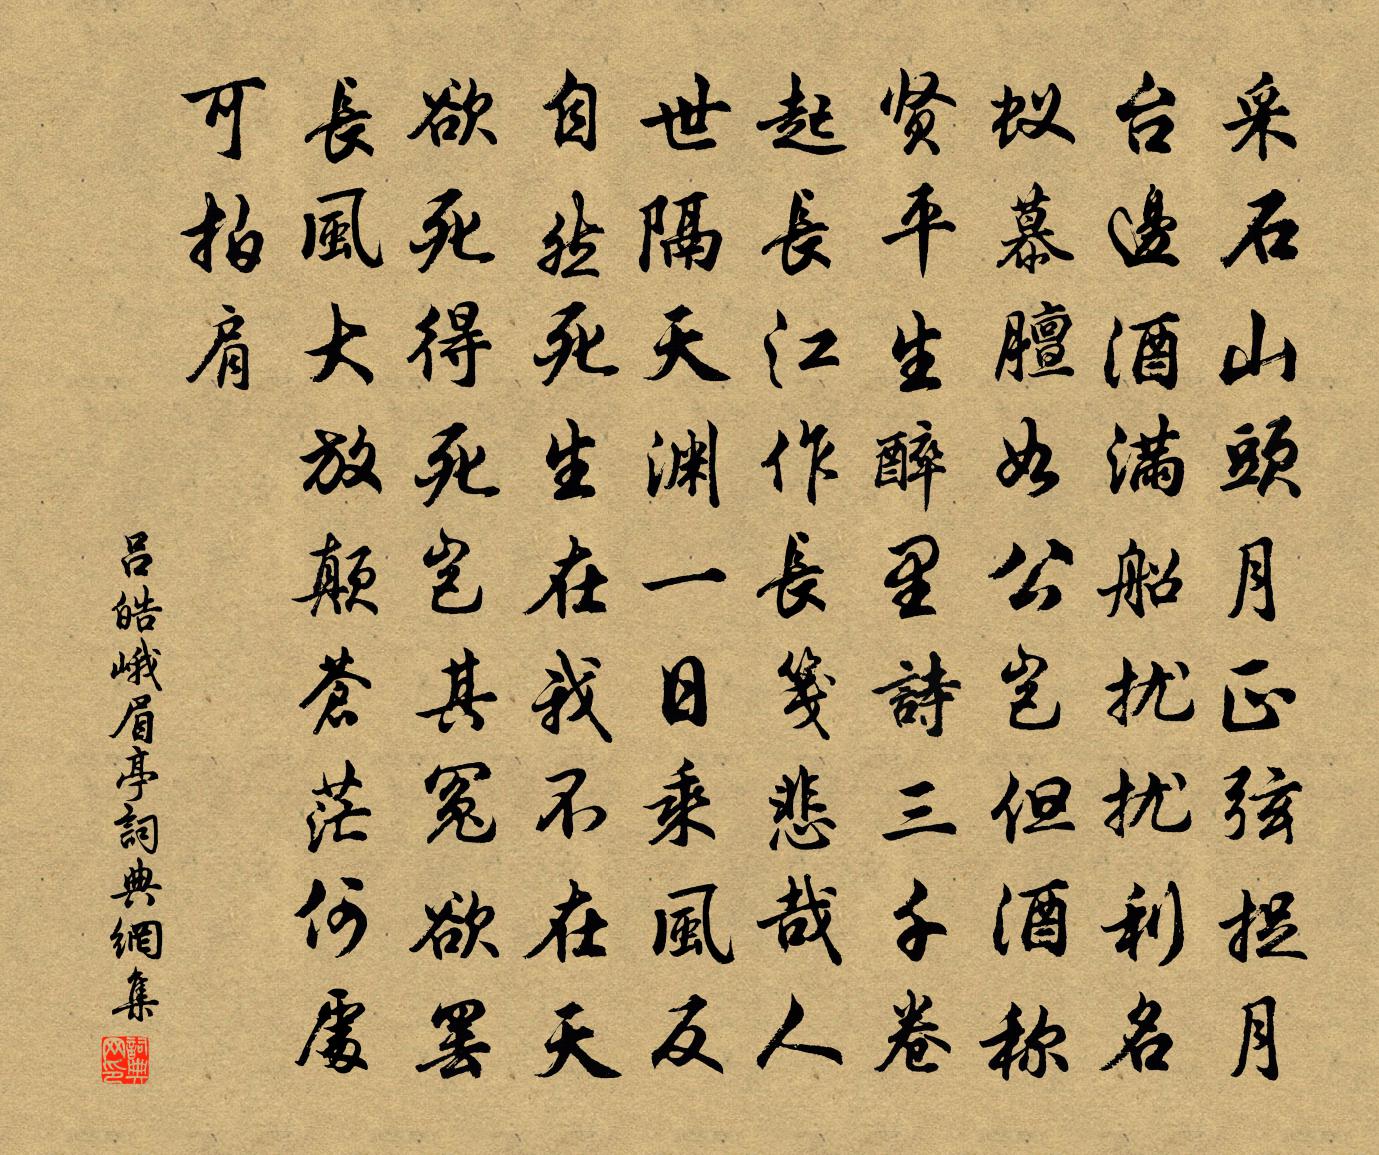 采石山頭月正弦捉月
台邊酒滿船扰扰利名
蚁慕膻如公岂但酒称
贤平生醉里詩三千卷
起長江作長箋悲哉人
世隔天渊一日乘風反
自然死生在我不在天
欲死得死岂其冤欲罢
長風大放颠蒼茫何處
可拍肩
吕皓峨眉亭詞典網集
詞典网印